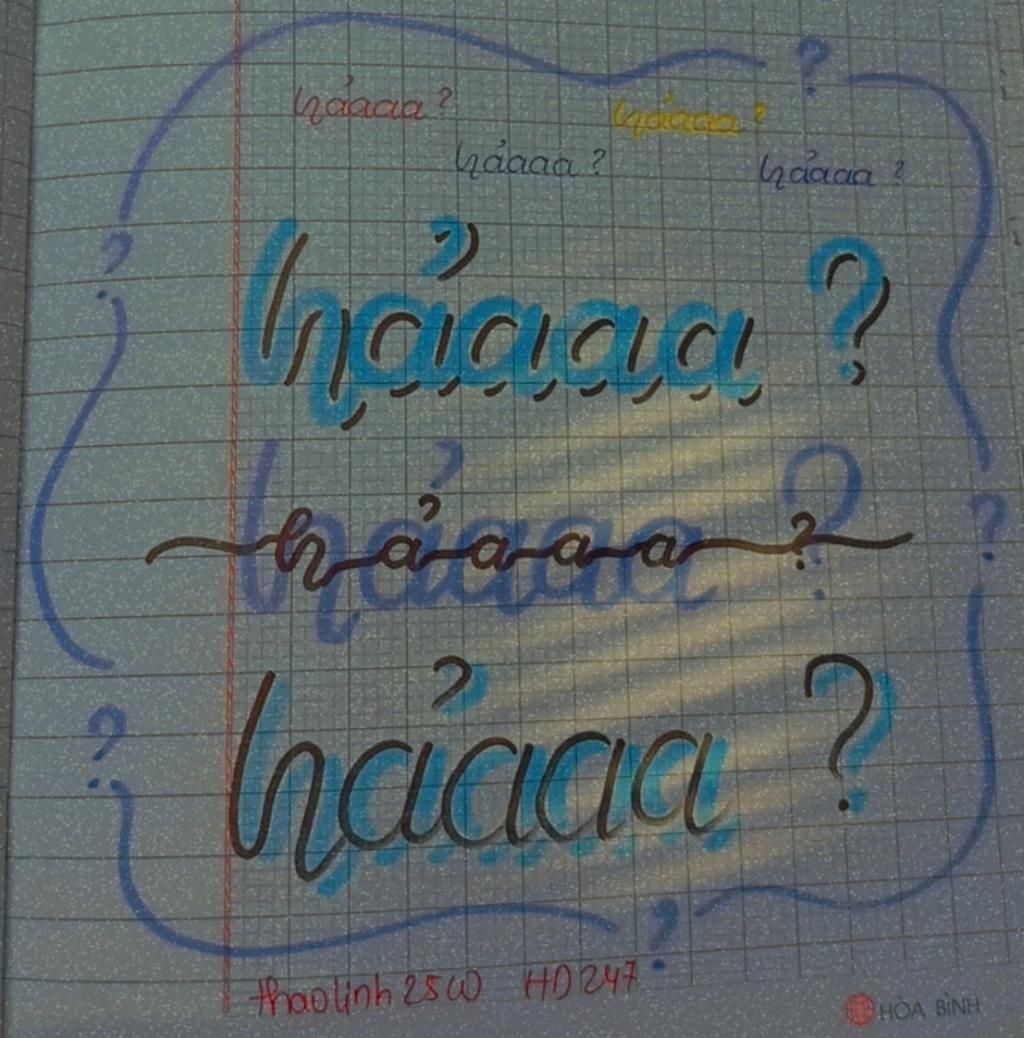 hảaaa ? hảaaa ?
hảaaa ? hảaaa ?
?
?
hảaaa ?
hảaaa ?
?
hảaaa ?
?
?
thaolinh25w HD247
HÒA BÌNH